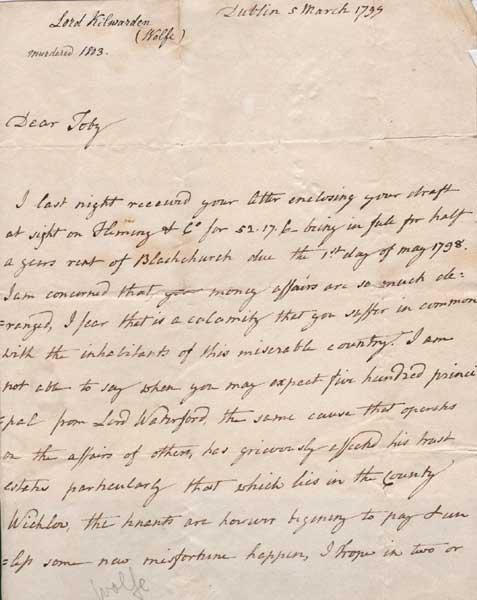 Lord Kilwarden
(Wolfe)
murdered 1803.
Dublin 5 March 1799
Dear Toby
I last night received your letter enclosing your draft
at sight on Fleming & Co for 52.17.6 being in full for half
a years rent of Blackchurch due the 1st day of may 1798.
I am concerned that your money affairs are so much de-
=ranged, I fear that is a calamity that you suffer in common
with the inhabitants of this miserable country. I am
not able to say when you may expect five hundred princi
=pal from Lord Waterford, the same cause that operates
on the affairs of others, has grievously affected his trust
estates particularly that which lies in the County
Wicklow, the tenants are however begining to pay & un
=less some new misfortune happen, I hope in two or
Wolfe